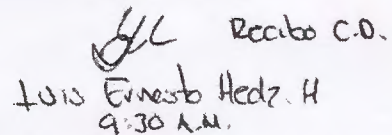 Recibo C.D.
Luis Ernesto Hedz. H
9:30 A.M.